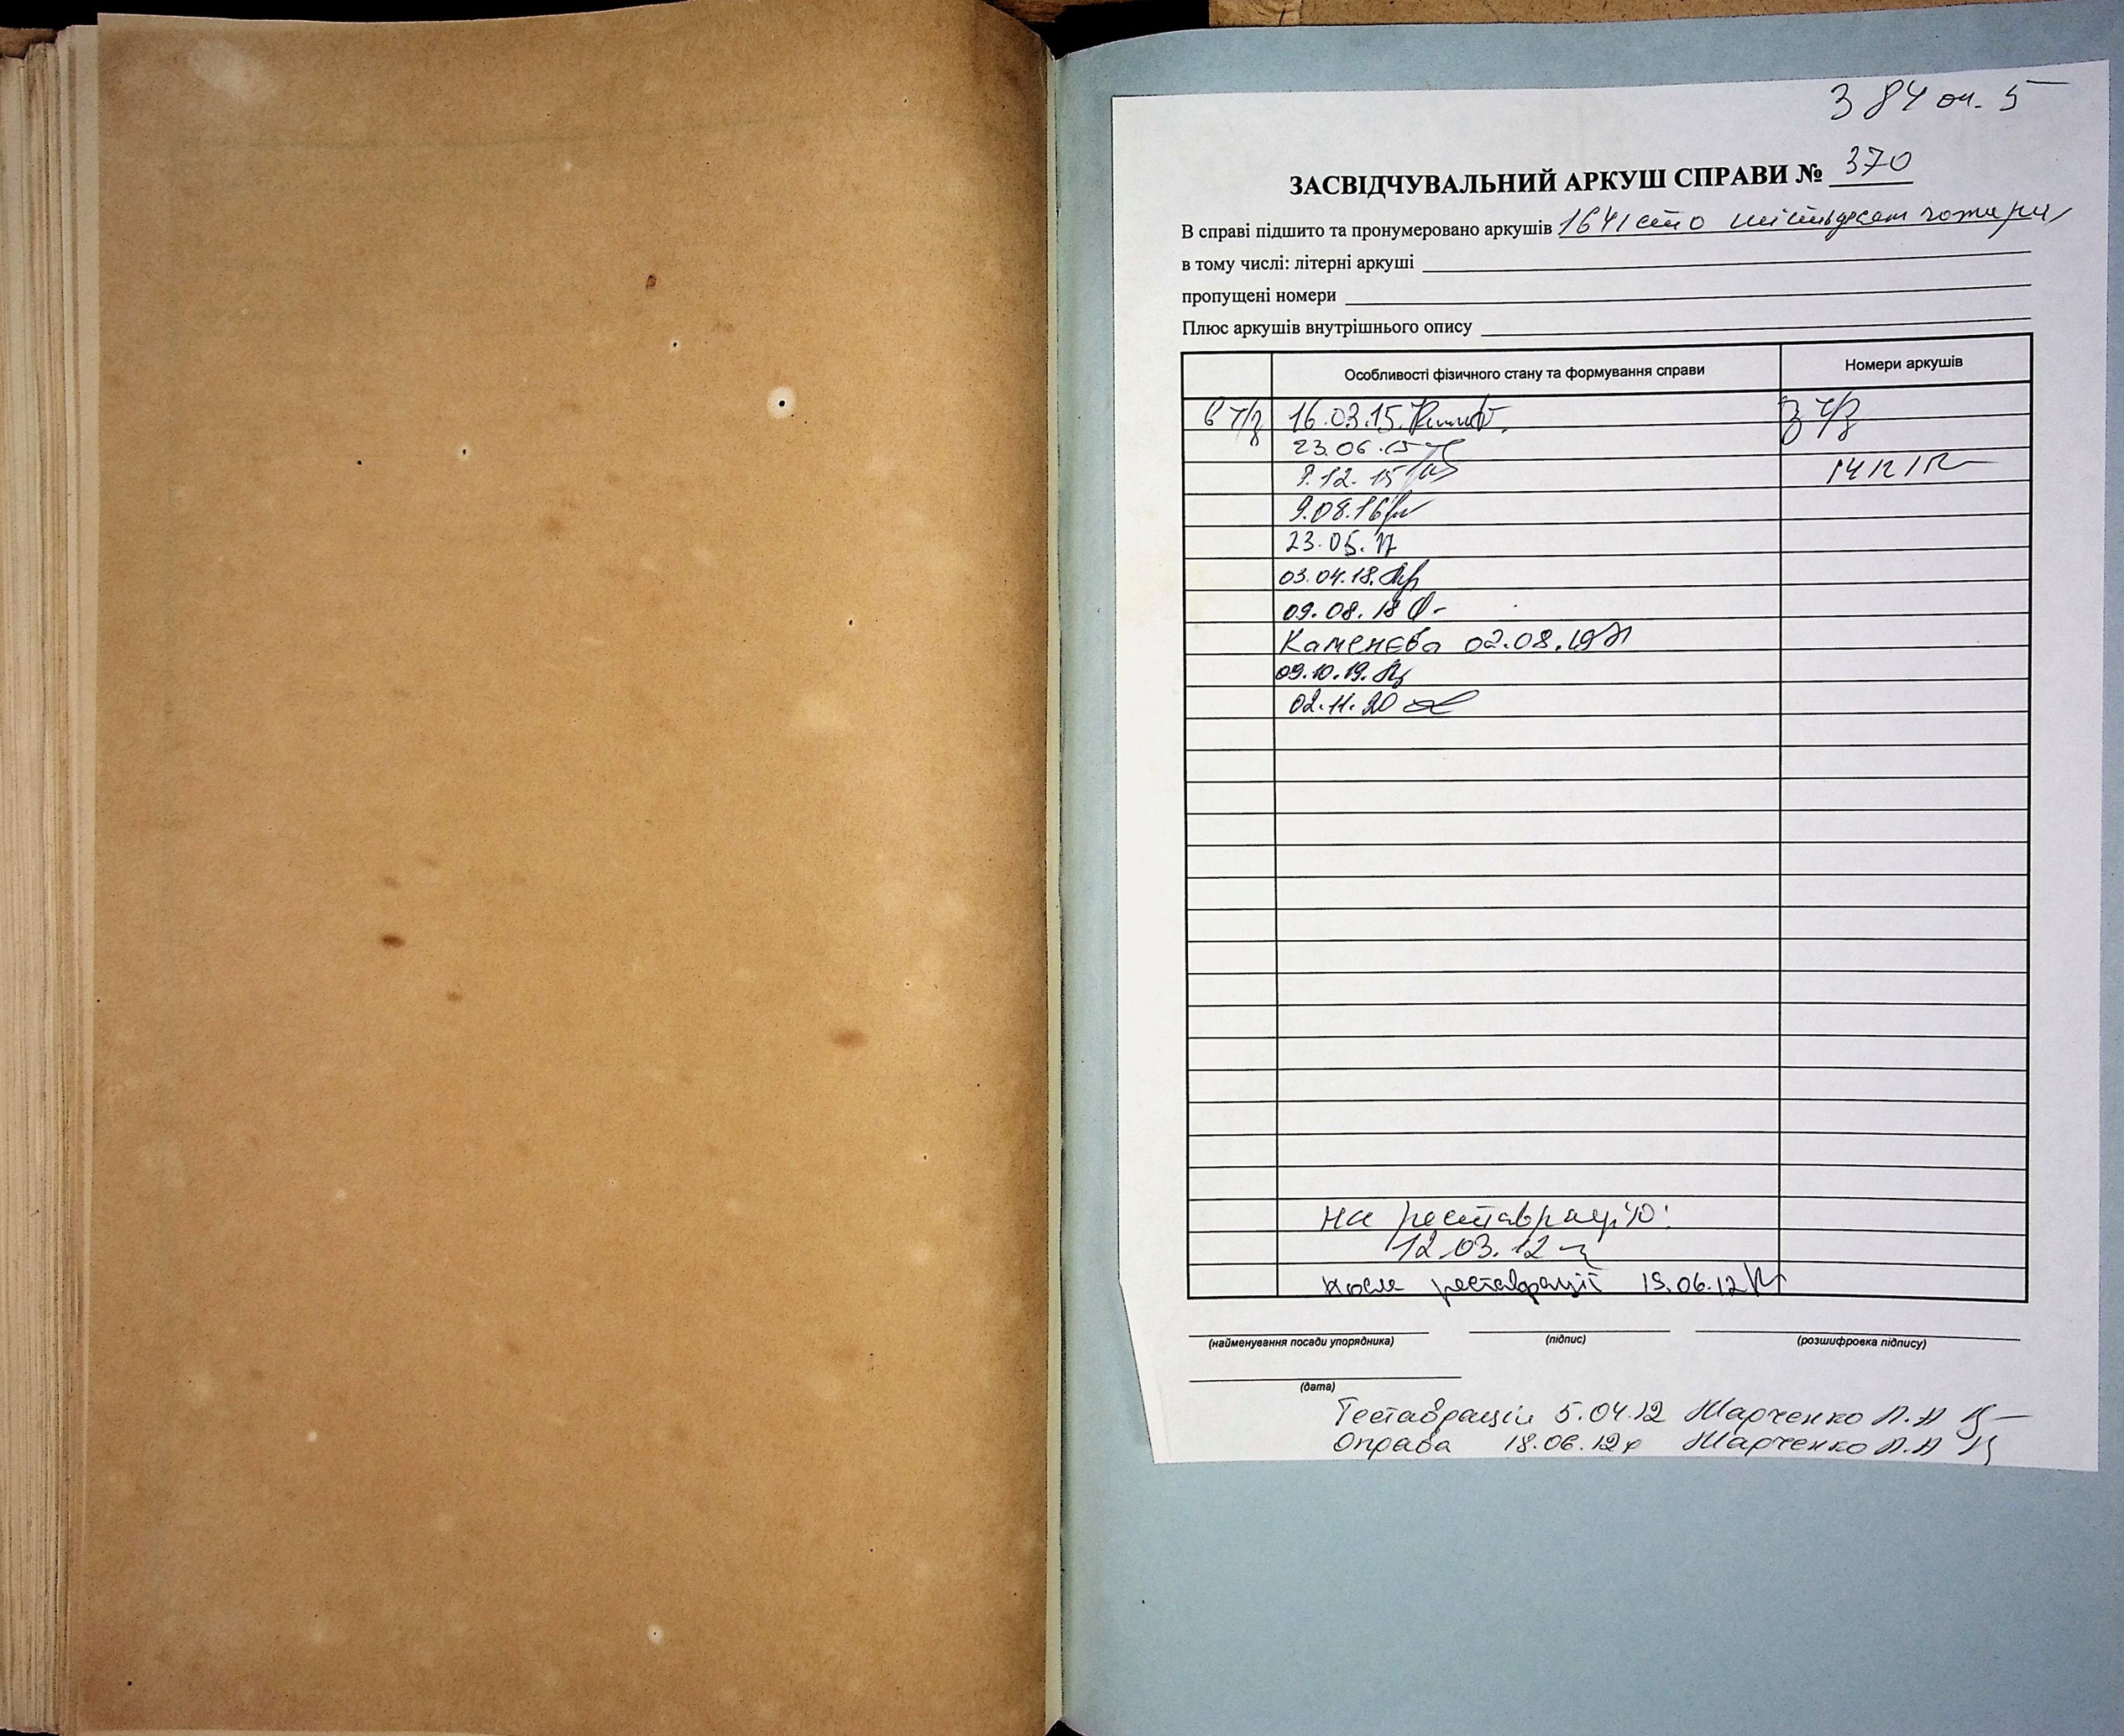 384 оп. 5
ЗАСВІДЧУВАЛЬНИЙ АРКУШ СПРАВИ № 370
В справі підшито та пронумеровано аркушів 164/сто шістдесят чотири/
в тому числі: літерні аркуші
пропущені номери
Плюс аркушів внутрішнього опису
Особливості фізичного стану та формування справи Номери аркушів
в ч/з 16.03.15. з ч/з
23.06.15
9.12.15
9.08.16
23.05.17
03.04.18.
09.08.18
Каменєва 02.08.19
09.10.19.
02.11.20
На реставрацію:
12.03.12
після реставрації 19.06.12
(найменування посади упорядника) (підпис) (розшифровка підпису)
(дата)
Реставрація 5.04.12 Марченко Л.А
Оправа 18.06.12р Марченко Л.А